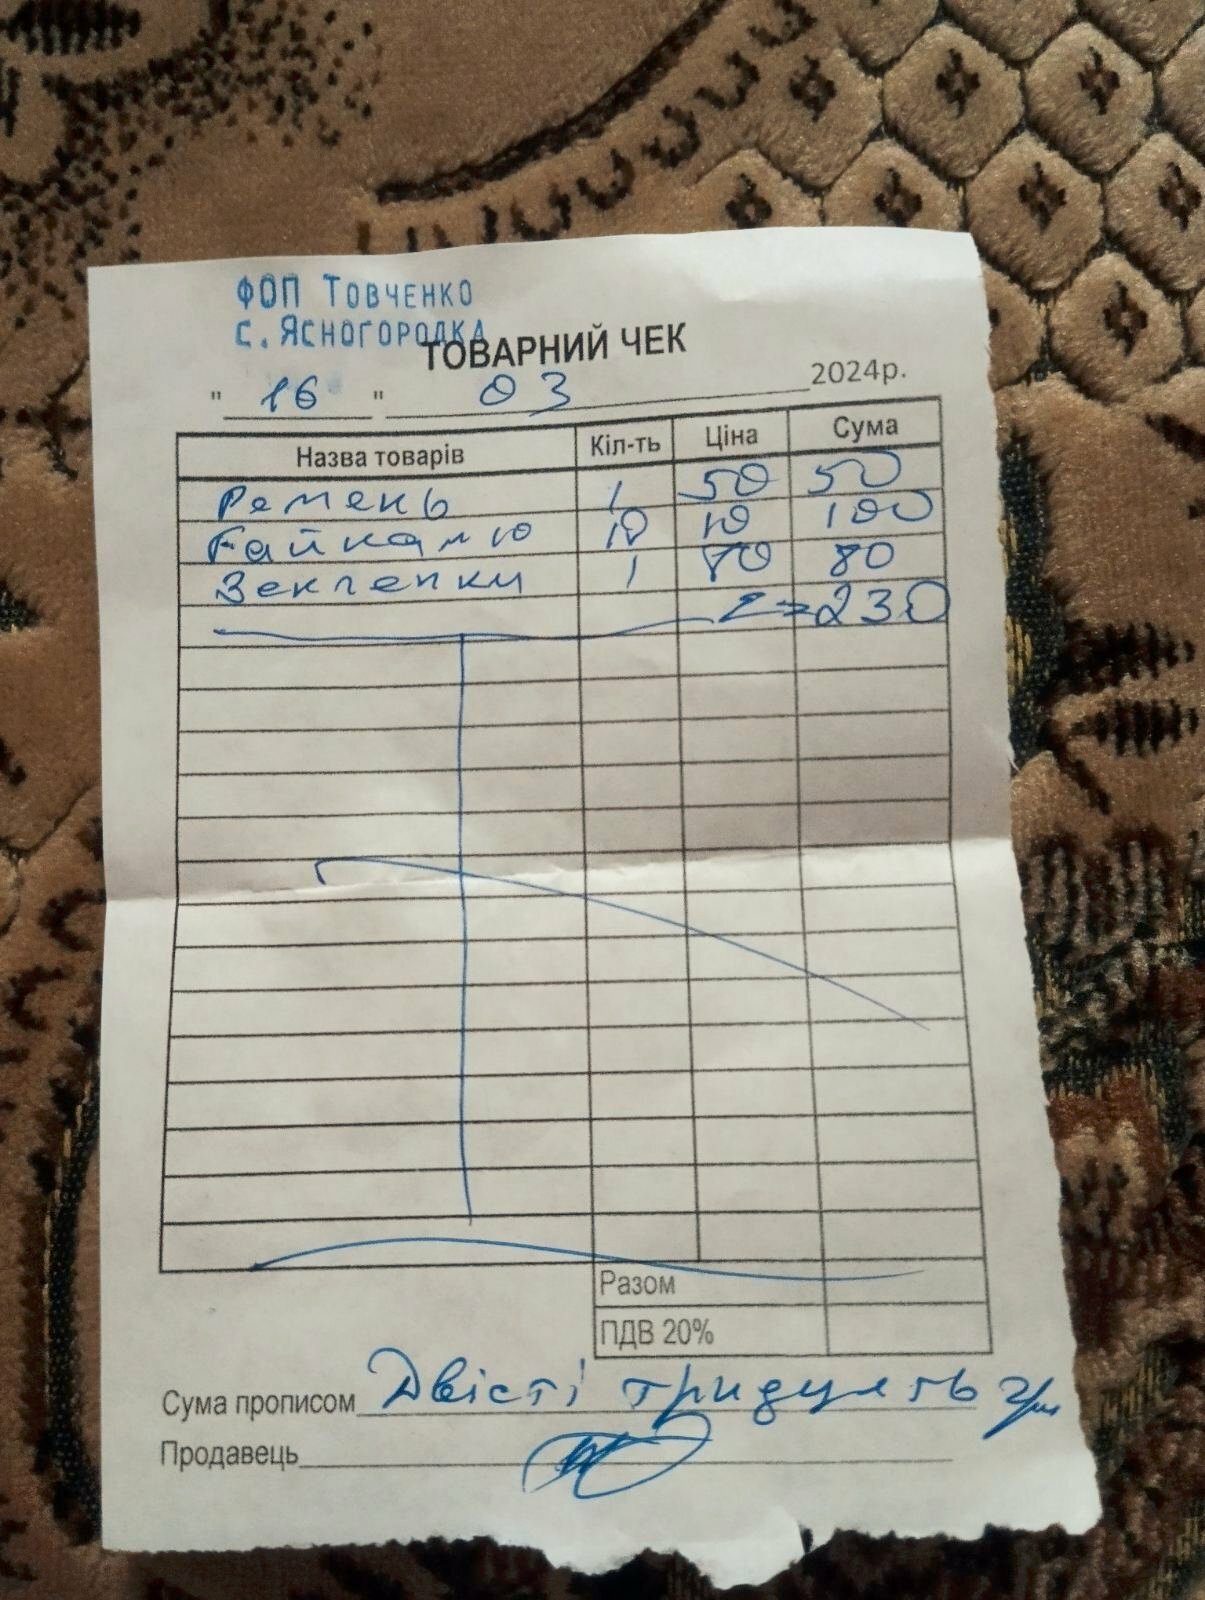 ФОП ТОВЧЕНКО
С. ЯСНОГОРОДКА
ТОВАРНИЙ ЧЕК
" 16 " 03 2024р.
Назва товарів Кіл-ть Ціна Сума
Ремень 1 50 50
10 10 100
Зекгепки 1 80 80
Σ = 230
Разом
ПДВ 20%
Сума прописом Двісті тридцять грн
Продавець